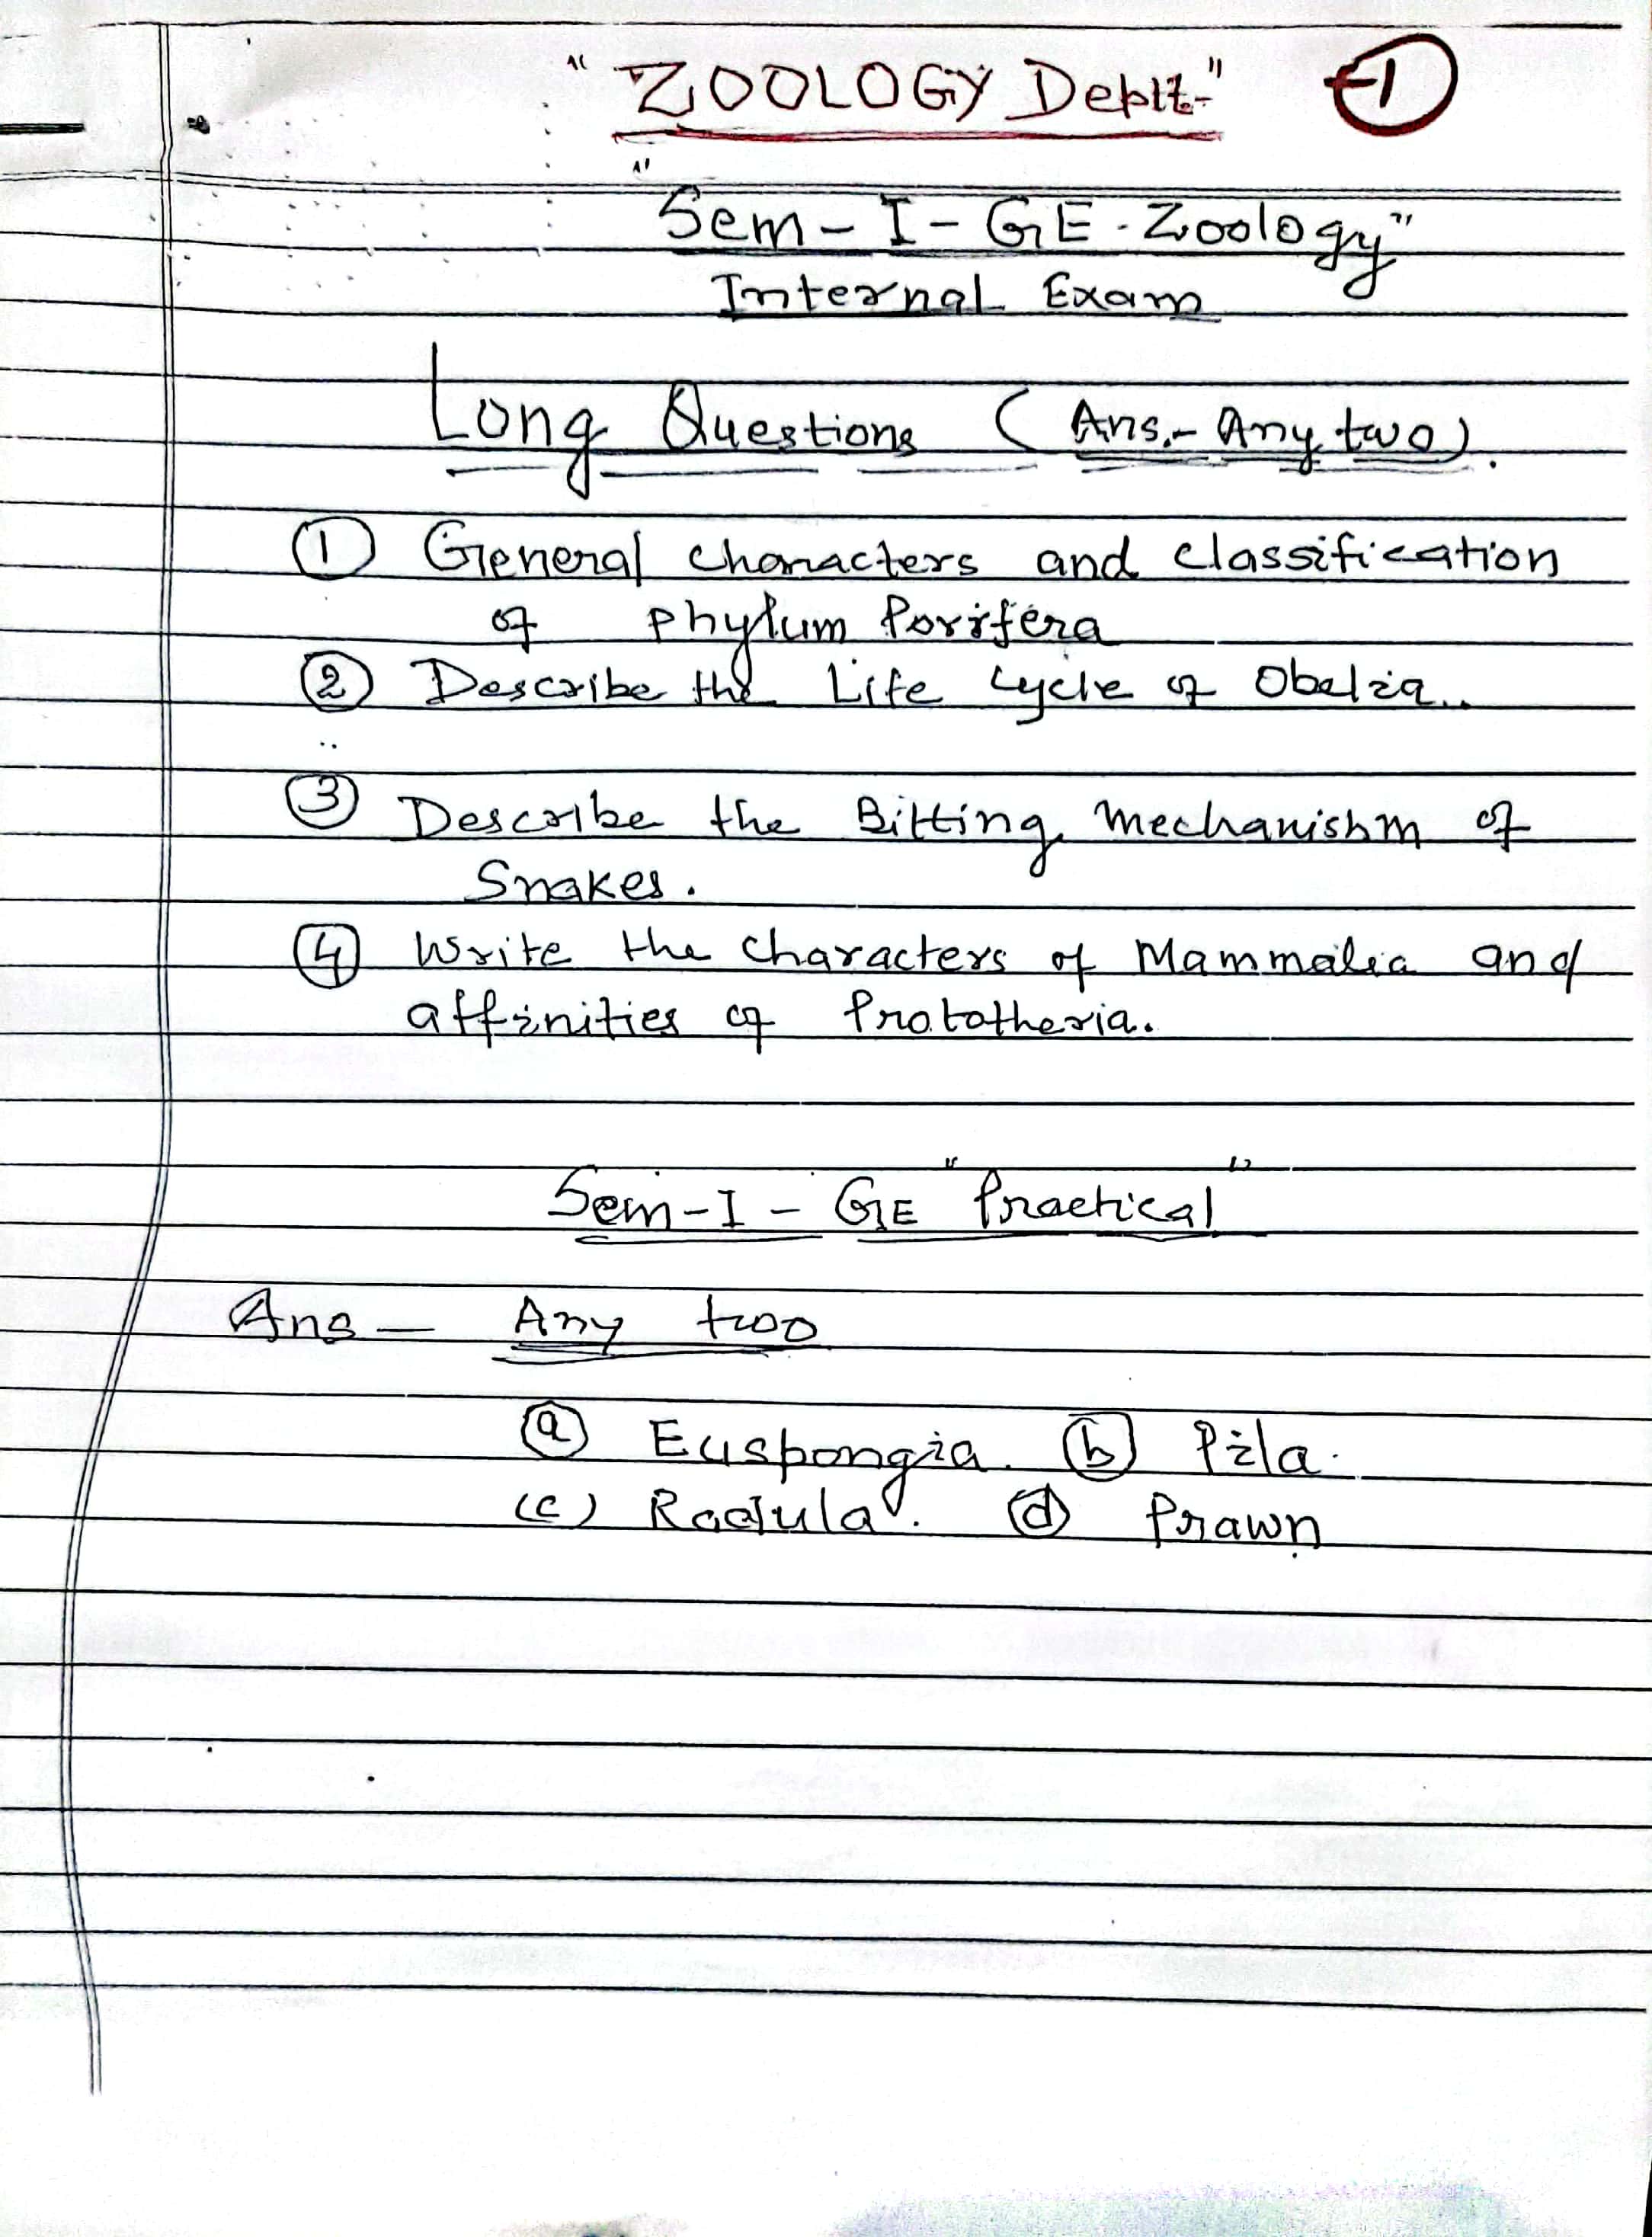 "ZOOLOGY Deptt-" 1
"Sem-I-GE-Zoology"
Internal Exam
Long Questions (Ans.- Any two).
① General characters and classification
of phylum Porifera
② Describe the Life Cycle of Obelia..
③ Describe the Bitting Mechanishm of
Snakes.
④ Write the characters of Mammalia and
affinities of Prototheria.
Sem-I-GE "Practical"
Ans- Any two
ⓐ Euspongia. ⓑ Pila.
(c) Radula. ⓓ Prawn